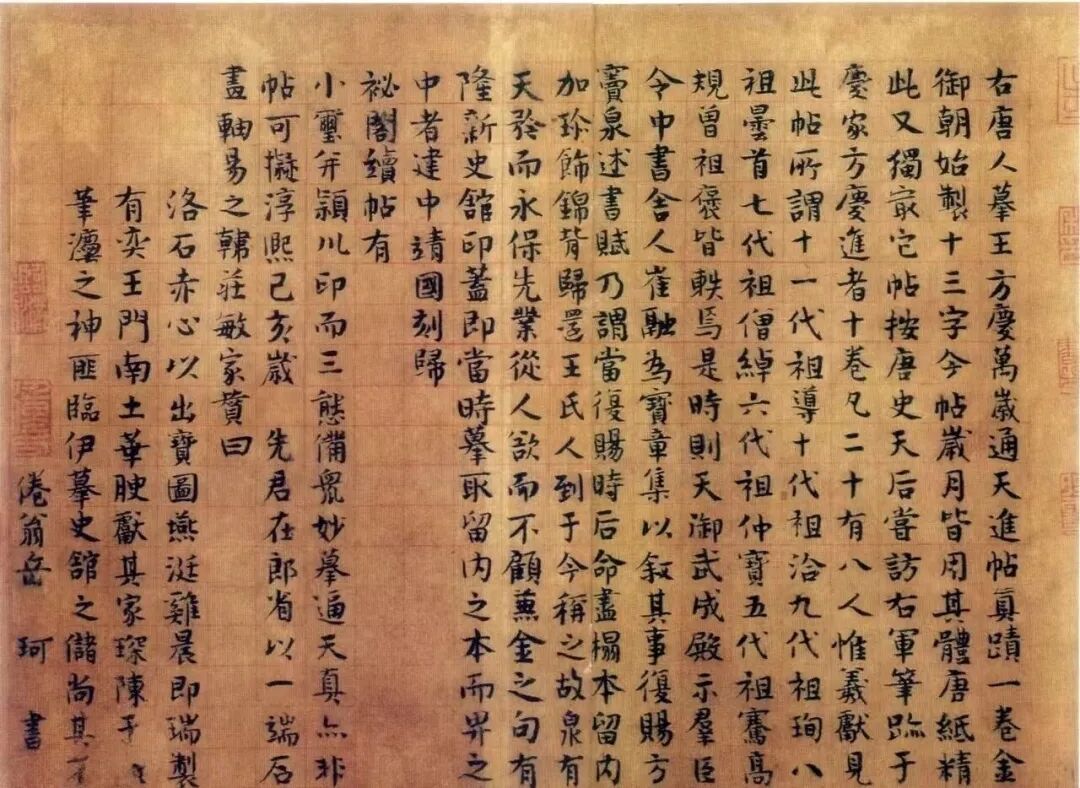 右唐人摹王方慶萬歲通天進帖真蹟一卷金
御朝始製十三字今帖歲月皆用其體唐紙精
此又獨最它帖按唐史天后嘗訪右軍筆跡于
慶家方慶進者十卷凡二十有八人惟羲獻見
此帖所謂十一代祖導十代祖洽九代祖珣八
祖曇首七代祖僧綽六代祖仲寶五代祖騫高
規曾祖褒皆軼焉是時則天御武成殿示羣臣
令中書舍人崔融為寶章集以敘其事復賜方
竇臮述書賦乃謂當復賜時后命盡榻本留内
加珍飾錦背歸還王氏人到于今稱之故臮有
天忩而永保先業從人欲而不顧蒹金之句有
隆新史舘印蓋即當時摹取留内之本而畀之
中者建中靖國刻歸
祕閣續帖有
小璽并潁川印而三態備眾妙摹逼天真亦非
帖可擬淳熙己亥歲　先君在郎省以一端石
畫軸易之韓莊敏家贊曰
洛石赤心以出寶圖燕涎雞晨即瑞製
有奕王門南土華腴獻其家琛陳于
筆瀍之神匪臨伊摹史舘之儲尚其
倦翁岳　珂　書